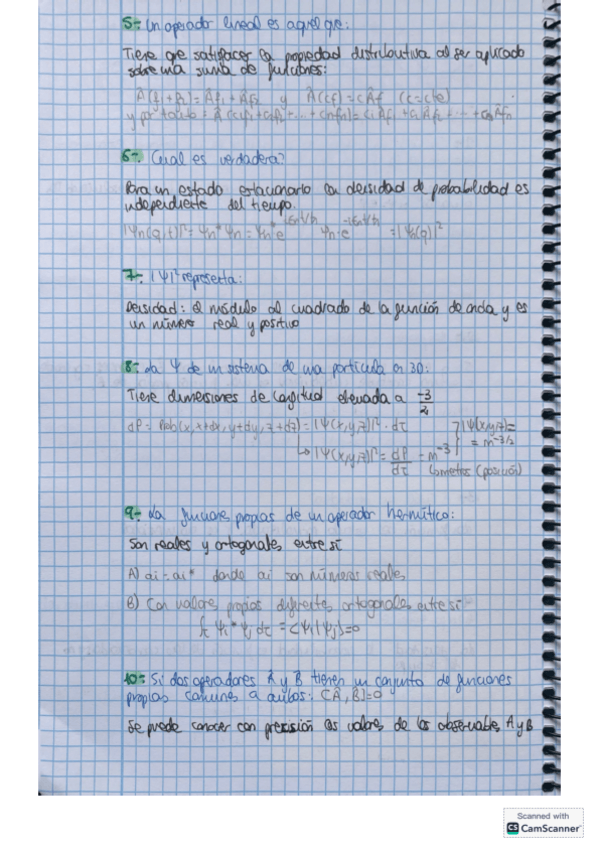 5- Un operador lineal es aquel que:
Tiene que satisfacer la propiedad distributiva al ser aplicado
sobre una suma de funciones:
Â(f₁+f₂)=Âf₁+Âf₂ y Â(cf)=cÂf (c=cte)
y por tanto: Â(c₁f₁+c₂f₂+...+cnfn)=c₁Âf₁+c₂Âf₂+...+cnÂfn
6- Cual es verdadera?
Para un estado estacionario la densidad de probabilidad es
independiente del tiempo.
|Ψn(q,t)|²=Ψn*Ψn=Ψn* e^{iEnt/ħ} Ψn·e^{-iEnt/ħ} =|Ψn(q)|²
7- |Ψ|² representa:
Densidad: el módulo al cuadrado de la función de onda y es
un número real y positivo
8- La Ψ de un sistema de una partícula en 3D:
Tiene dimensiones de longitud elevada a -3/2
dP= Prob(x,x+dx,y+dy,z+dz)=|Ψ(x,y,z)|²·dτ
↳|Ψ(x,y,z)|²= dP/dτ = m⁻³ } |Ψ(x,y,z)=
= m^{-3/2}
↳metros (posición)
9- La funciones propias de un operador hermítico:
Son reales y ortogonales entre sí
A) ai=ai* donde ai son números reales
B) Con valores propios diferentes ortogonales entre sí
∫ Ψi* Ψj dτ = <Ψi|Ψj>=0
10- Si dos operadores Â y B̂ tienen un conjunto de funciones
propias comunes a ambos: [Â,B̂]=0
Se puede conocer con precisión los valores de los observables A y B
Scanned with
CS CamScanner